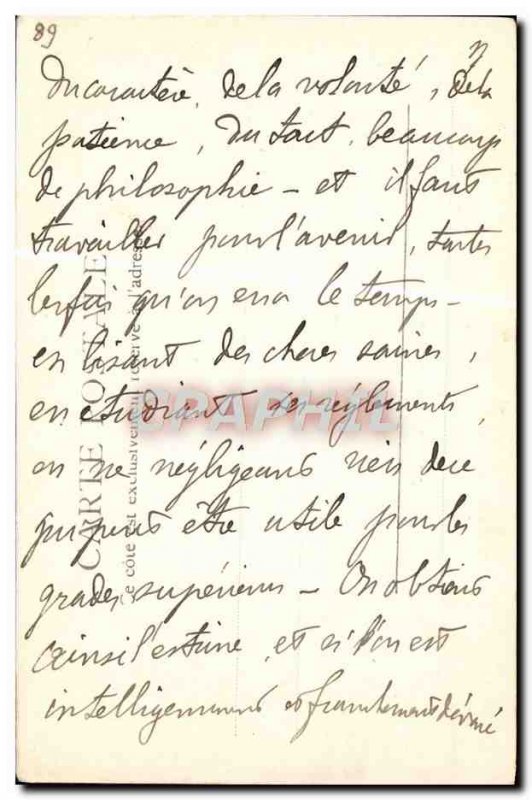 89
Du caractère, de la volonté, de la
patience, du tact, beaucoup
de philosophie - et il faut
travailler pour l'avenir, toutes
les fois qu'on en a le temps -
en lisant des choses saines,
en étudiant ses règlements,
en ne négligeant rien de ce
qui peut être utile pour les
grades supérieurs - On obtient
ainsi l'estime, et si l'on est
intelligemment et franchement dévoué
CARTE POSTALE
Ce côté est exclusivement réservé à l'adresse
CPAPHIL